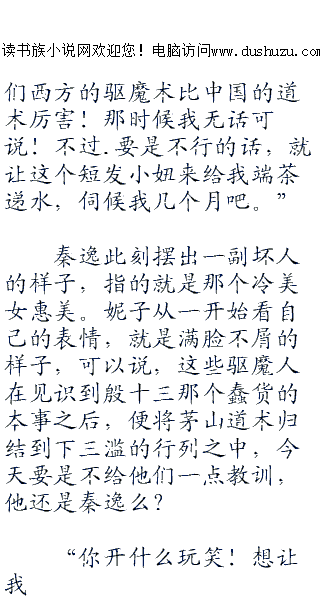 读书族小说网欢迎您！电脑访问www.dushuzu.com
们西方的驱魔术比中国的道
术厉害！那时候我无话可
说！不过.要是不行的话，就
让这个短发小妞来给我端茶
递水，伺候我几个月吧。”
秦逸此刻摆出一副坏人
的样子，指的就是那个冷美
女惠美。妮子从一开始看自
己的表情，就是满脸不屑的
样子，可以说，这些驱魔人
在见识到殷十三那个蠢货的
本事之后，便将茅山道术归
结到下三滥的行列之中，今
天要是不给他们一点教训，
他还是秦逸么？
“你开什么玩笑！想让
我